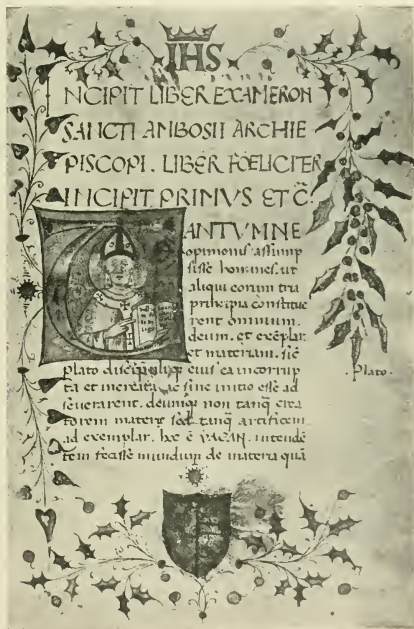 IHS
NCIPIT LIBER EXAMERON
SANCTI AMBOSII ARCHIE
PISCOPI. LIBER FOELICITER
INCIPIT PRIMVS ET C̃.
ANTVMNE
opinionis assump
sisse homines. ut
aliqui eorum tria
principia constitue
rent omnium.
deum. et exẽplar
et materiam. sic
plato discipuliqȝ eius ea incorrup
ta et ac sine initio esse ad
seuerarent. deumqȝ non tanqȝ crea
torem materie sed tanqȝ artificem
ad exemplar. hoc ẽ intendẽ
tem fecisse mundum de materia quã
.Plato.